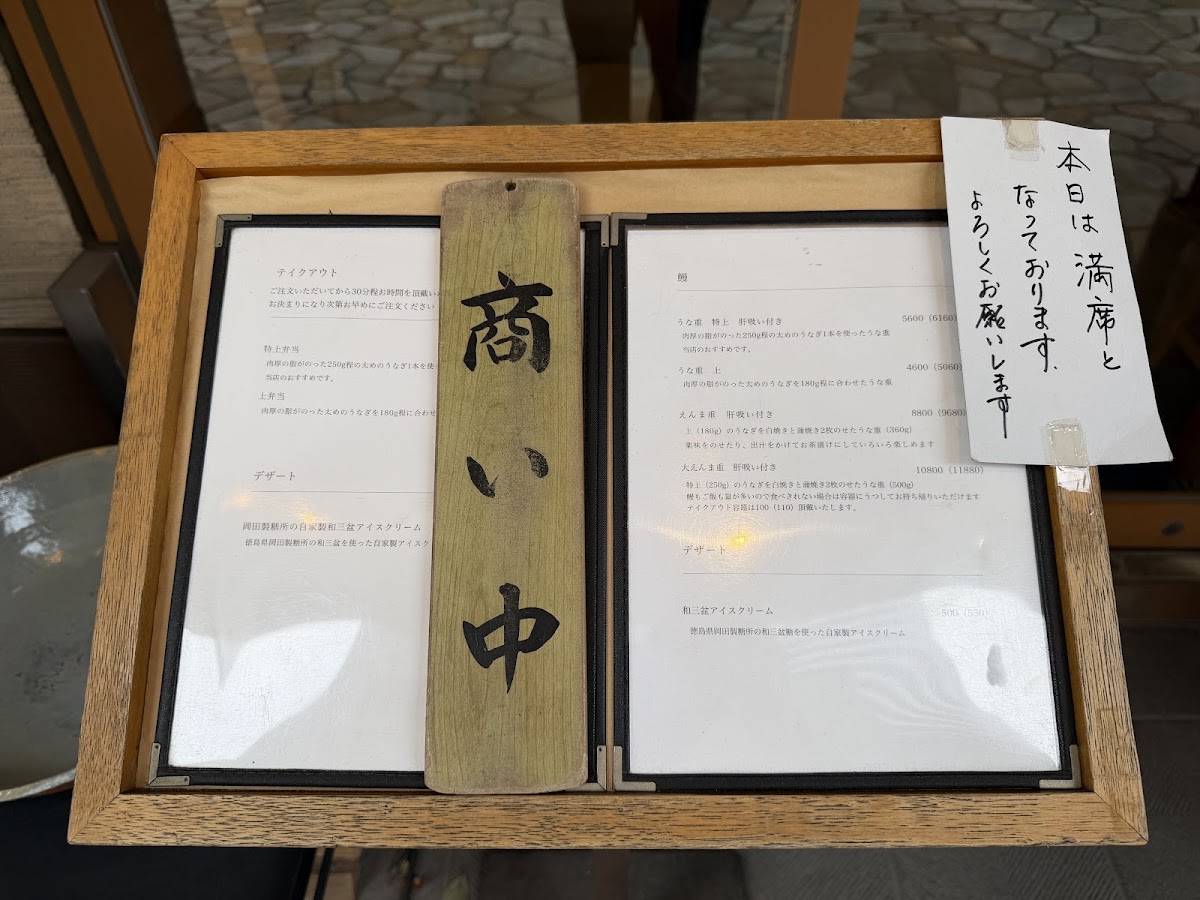 テイクアウト
ご注文いただいてから30分程お時間を頂戴い
お決まりになり次第お早めにご注文ください
特上弁当
肉厚の脂がのった250g程の太めのうなぎ1本を使
当店のおすすめです。
上弁当
肉厚の脂がのった太めのうなぎを180g程に合わせ
デザート
岡田製糖所の自家製和三盆アイスクリーム
徳島県岡田製糖所の和三盆を使った自家製アイスク
商い中
鰻
うな重 特上 肝吸い付き 5600（6160）
肉厚の脂がのった250g程の太めのうなぎ1本を使ったうな重
当店のおすすめです。
うな重 上 4600（5060）
肉厚の脂がのった太めのうなぎを180g程に合わせたうな重
えんま重 肝吸い付き 8800（9680）
上（180g）のうなぎを白焼きと蒲焼き2枚のせたうな重（360g）
薬味をのせたり、出汁をかけてお茶漬けにしていろいろ楽しめます
大えんま重 肝吸い付き 10800（11880）
特上（250g）のうなぎを白焼きと蒲焼き2枚のせたうな重（500g）
鰻もご飯も量が多いので食べきれない場合は容器にうつしてお持ち帰りいただけます
テイクアウト容器は100（110）頂戴いたします。
デザート
和三盆アイスクリーム 500（550）
徳島県岡田製糖所の和三盆糖を使った自家製アイスクリーム
本日は満席と
なっております.
よろしくお願いします